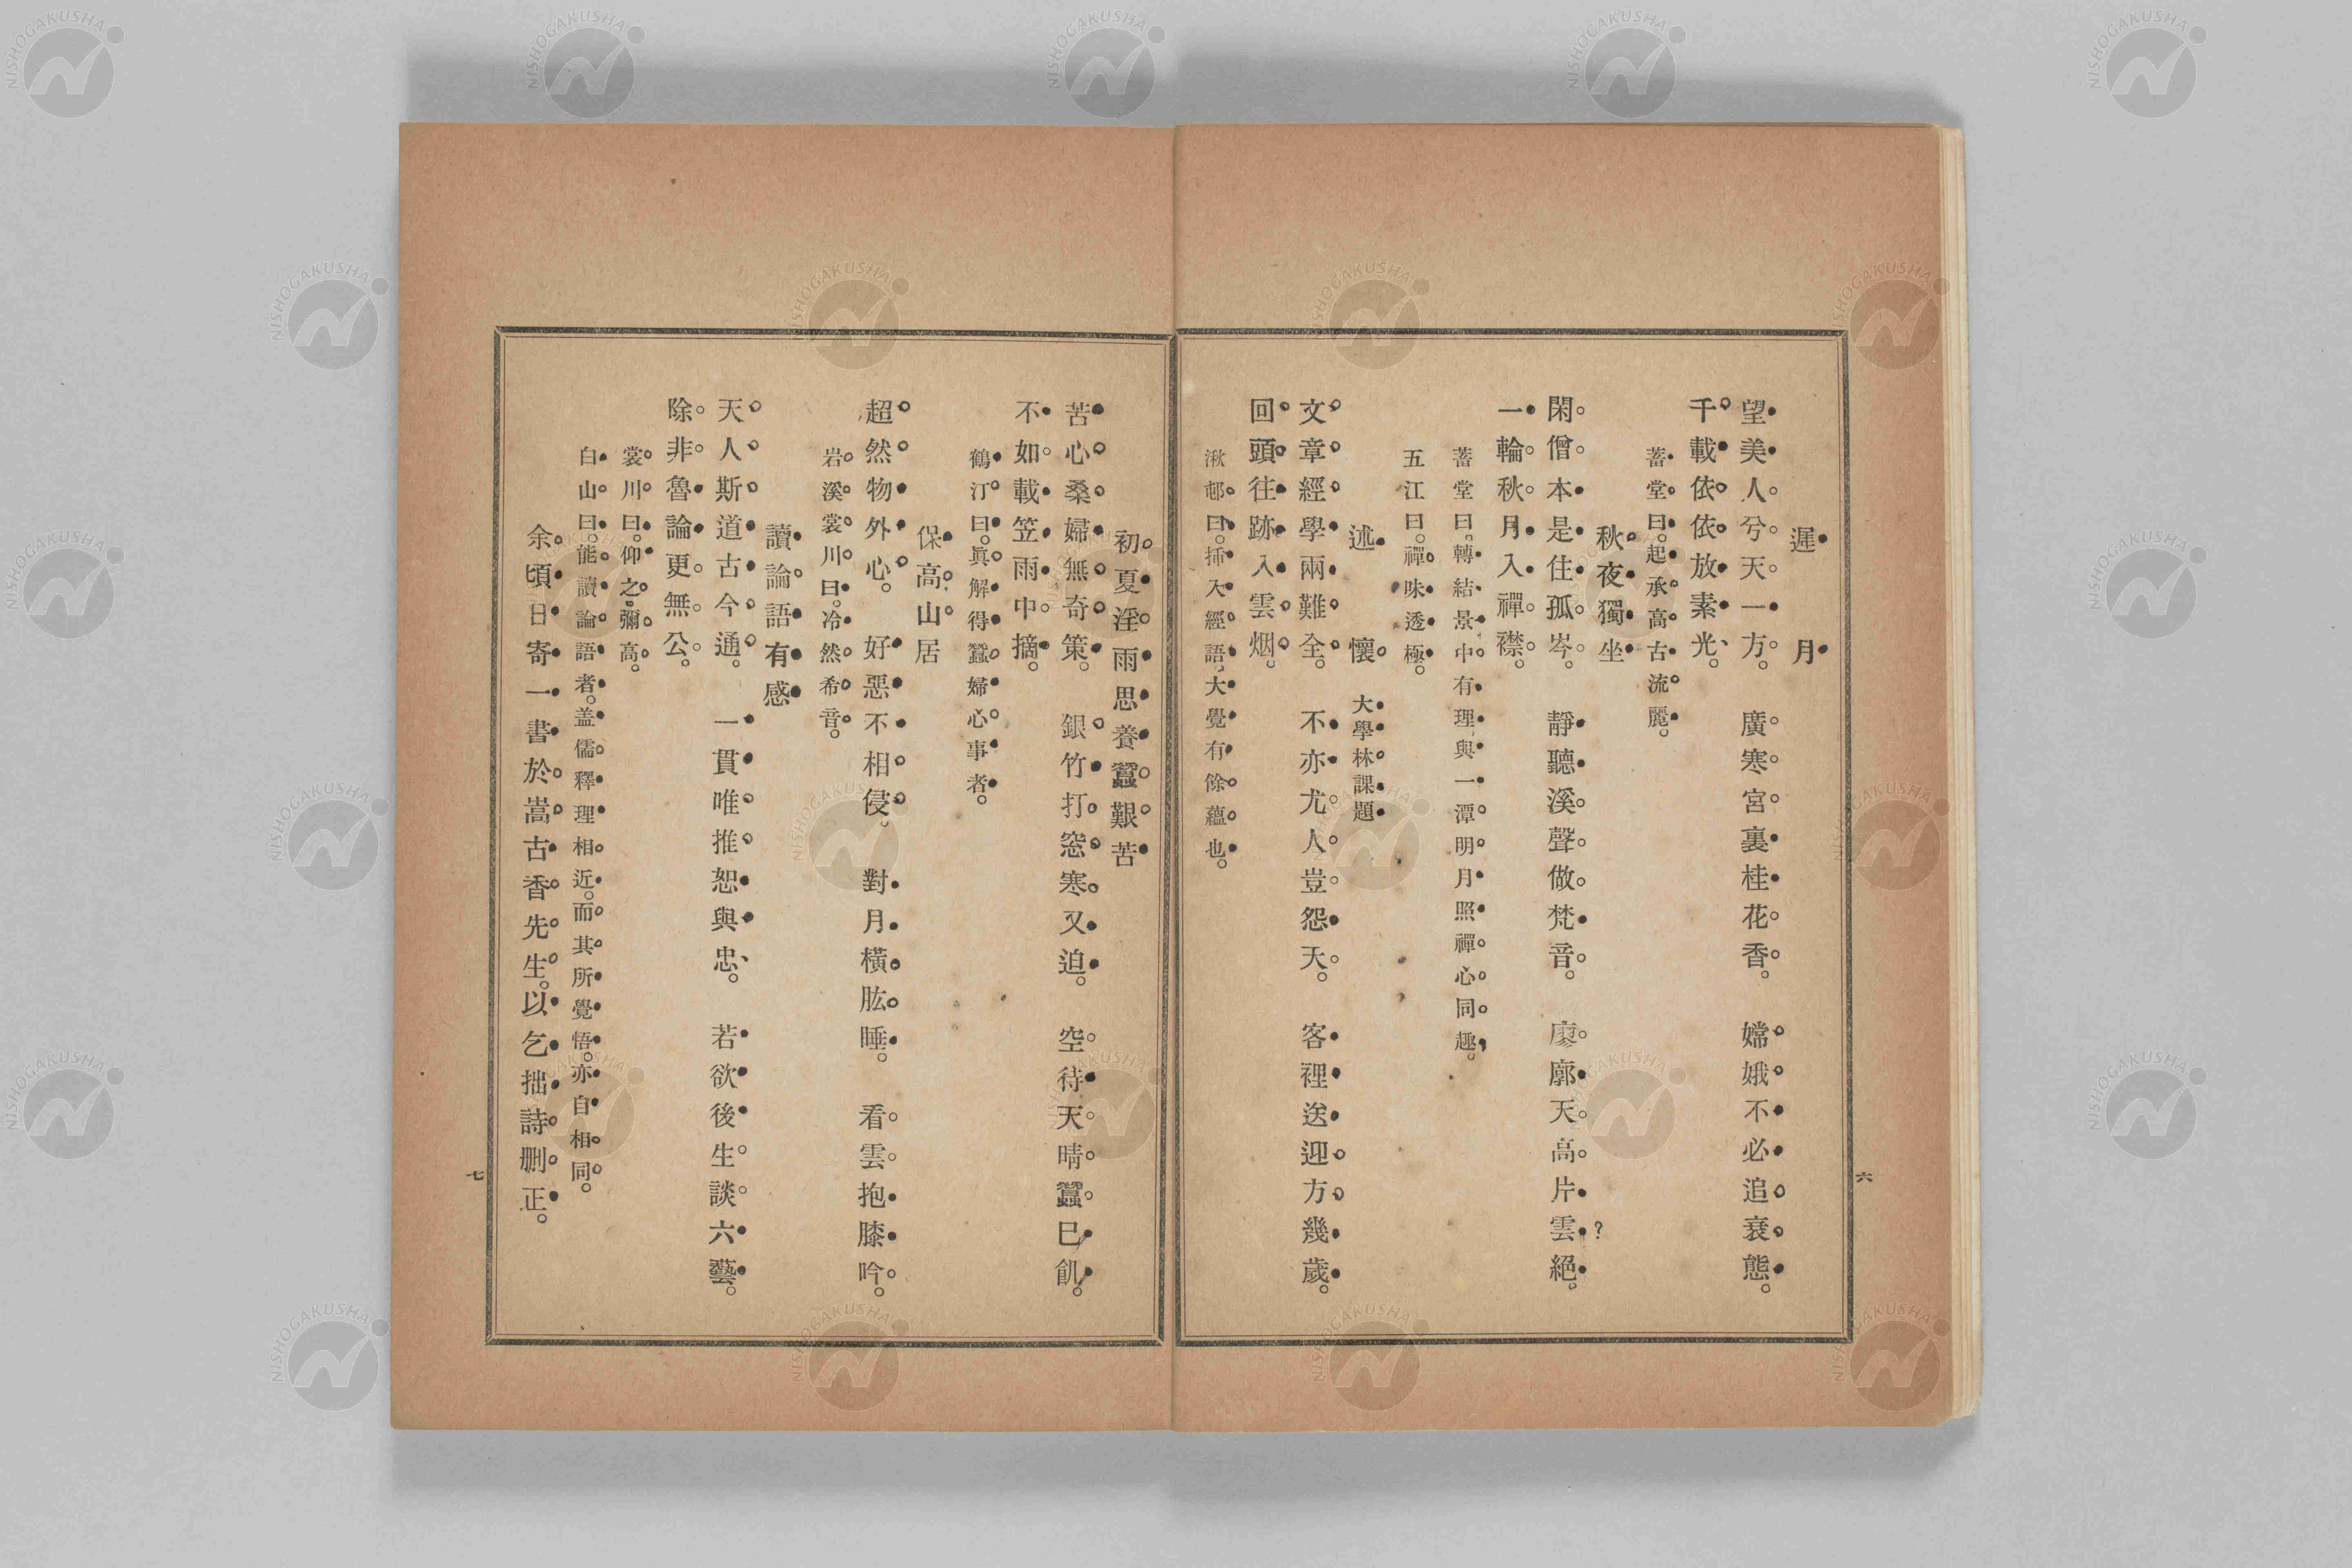 遲月
望美人兮天一方。廣寒宮裏桂花香。嫦娥不必追衰態。
千載依依放素光。
蓄堂曰。起承高古流麗。
秋夜獨坐
閑僧本是住孤岑。靜聽溪聲做梵音。廖廓天高片雲絕。
?
一輪秋月入禪襟。
蓄堂曰。轉結景中有理、與一潭明月照禪心同趣。
五江曰。禪味透極。
述懷 大學林課題
文章經學兩難全。不亦尤人豈怨天。客裡送迎方幾歲。
回頭往跡入雲烟。
湫邨曰。揷入經語、大覺有餘蘊也。
六
初夏淫雨思養蠶艱苦
苦心桑婦無奇策。銀竹打窓寒又迫。空待天晴蠶巳飢。
不如載笠雨中摘。
鶴汀曰。眞解得蠶婦心事者。
保高山居
超然物外心。好惡不相侵。對月橫肱睡。看雲抱膝吟。
岩溪裳川曰。冷然希音。
讀論語有感
天人斯道古今通。一貫唯推恕與忠。若欲後生談六藝。
除非魯論更無公。
裳川曰。仰之彌高。
白山曰。能讀論語者。盖儒釋理相近。而其所覺悟。亦自相同。
余頃日寄一書於嵩古香先生。以乞拙詩刪正。
七
NISHOGAKUSHA